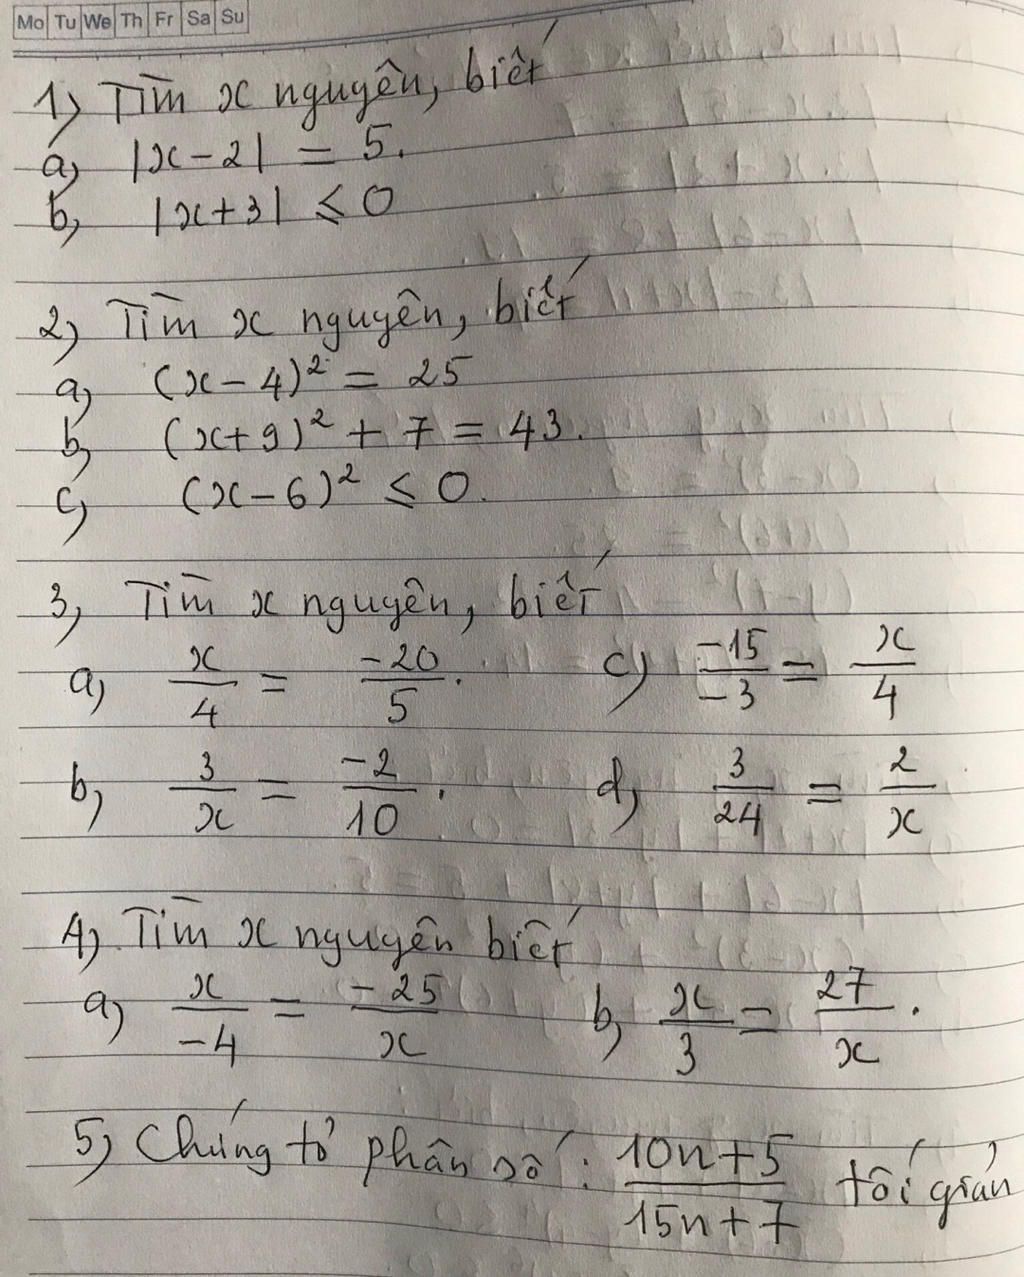 Mo Tu We Th Fr Sa Su
1) Tìm x nguyên, biết
a) |x-2| = 5.
b) |x+3| ≤ 0
2) Tìm x nguyên, biết
a) (x-4)² = 25
b) (x+9)² + 7 = 43.
c) (x-6)² ≤ 0.
3) Tìm x nguyên, biết
a) x/4 = -20/5. c) -15/-3 = x/4
b) 3/x = -2/10. d) 3/24 = 2/x
4) Tìm x nguyên biết
a) x/-4 = -25/x b) x/3 = 27/x.
5) Chứng tỏ phân số: 10n+5/15n+7 tối giản